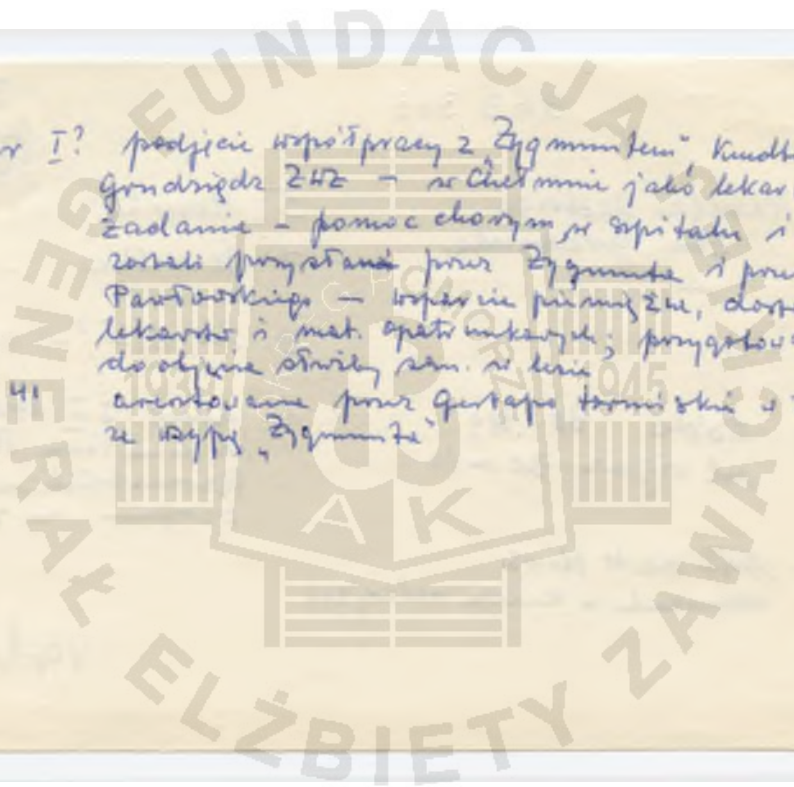 I? podjęcie współpracy z „Zygmuntem"
Grudziądz ZWZ – w Chełmnie jako lekar
zadanie – pomoc chorym w szpitalu i
zostali przysłani przez Zygmunta i prze
Pawłowskiego – wsparcie pieniężne, dost
lekarstw i mat. opatrunkowych; przygotow
do objęcia służby san. w lesie
41 aresztowanie przez Gestapo toruńskie w
ze wsypą „Zygmunta"
FUNDACJA
GENERAŁ ELŻBIETY ZAWACKIEJ
POMORZE
1939 1945
AK